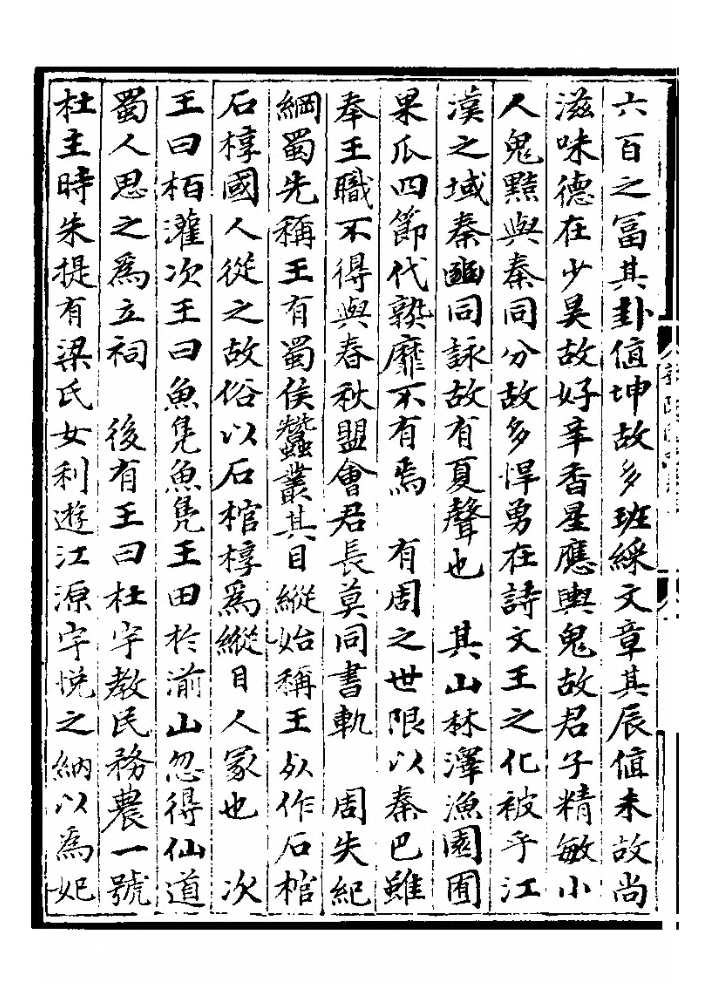 六百之冨其卦值坤故多班綵文章其辰值未故尚
滋味德在少昊故好辛香星應輿鬼故君子精敏小
人鬼黠與秦同分故多悍勇在詩文王之化被乎江
漢之域秦豳同詠故有夏聲也　其山林澤漁園囿
果瓜四節代熟靡不有焉　有周之世限以秦巴雖
奉王職不得與春秋盟會君長莫同書軌　周失紀
綱蜀先稱王有蜀侯蠶叢其目縱始稱王死作石棺
石椁國人從之故俗以石棺椁爲縱目人冢也　次
王曰栢灌次王曰魚凫魚凫王田於湔山忽得仙道
蜀人思之爲立祠　後有王曰杜宇教民務農一號
杜主時朱提有梁氏女利遊江源宇悅之納以爲妃